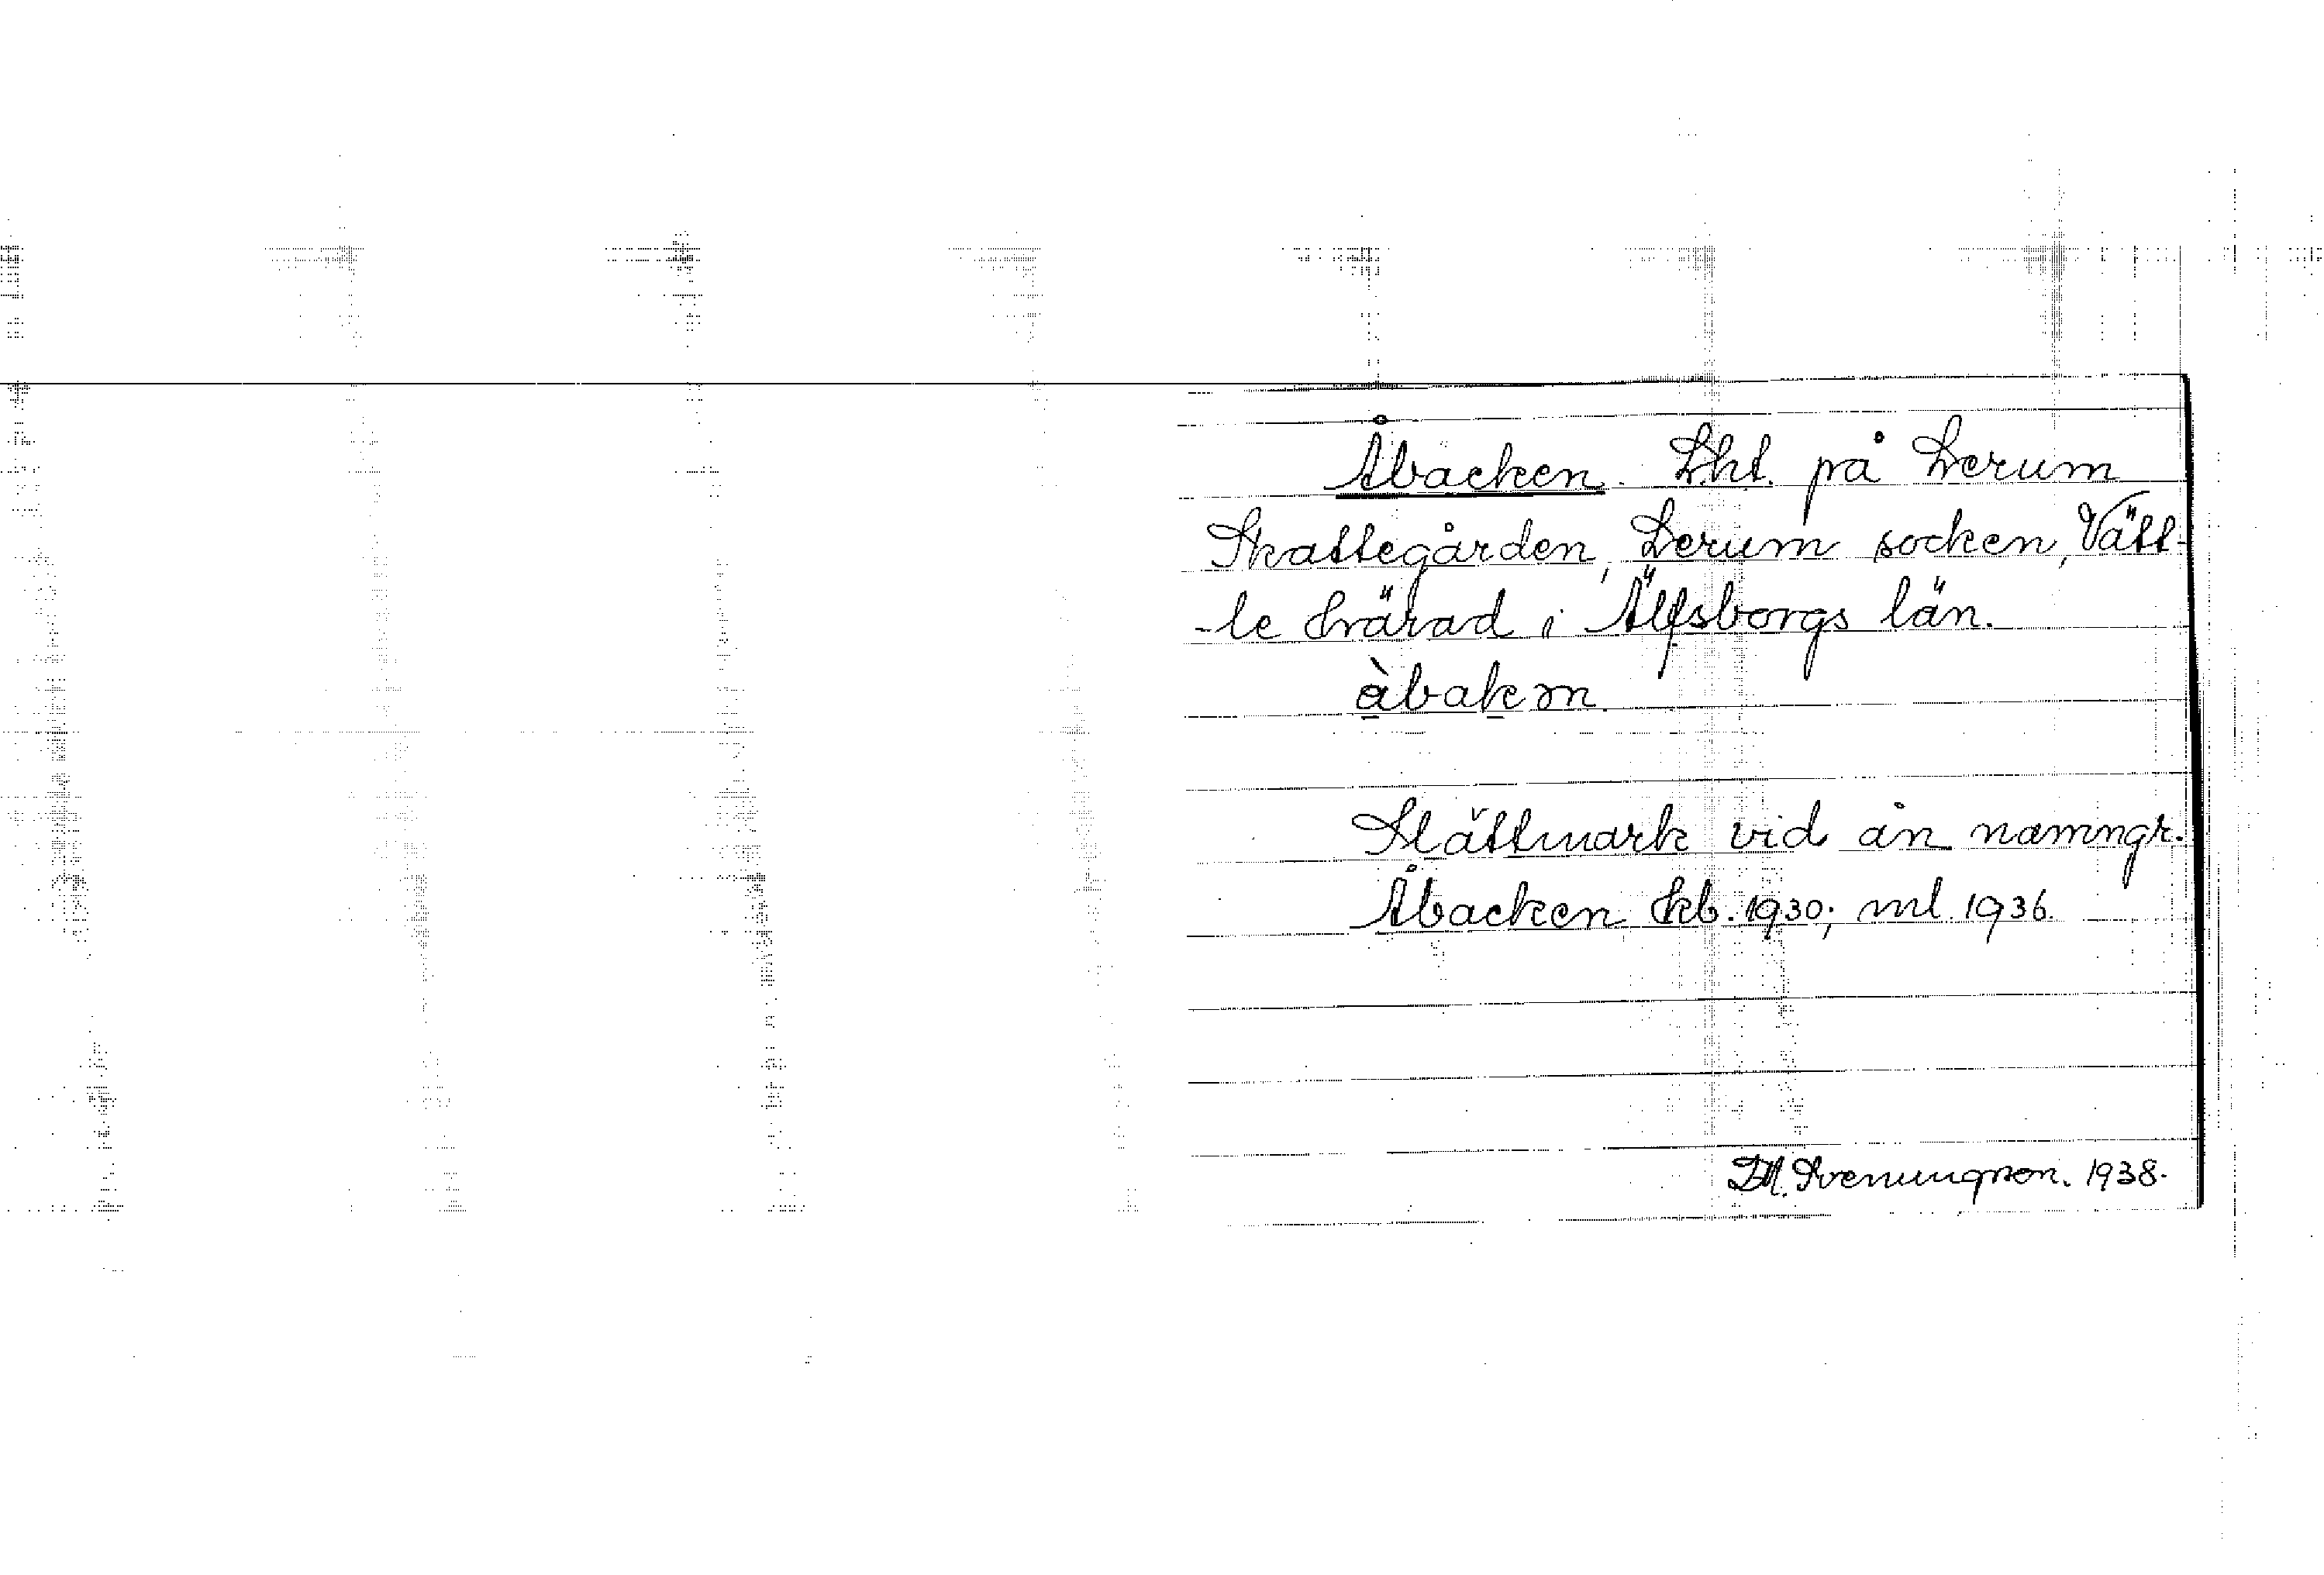 Åbacken. Lht. på Lerum
Skattegården, Lerum socken, Vätt-
-le härad i Älfsborgs län.
àbakm
Slättmark vid ån namngr.
Åbacken Ekb. 1930; ml 1936.
D.A. Svenungson. 1938.